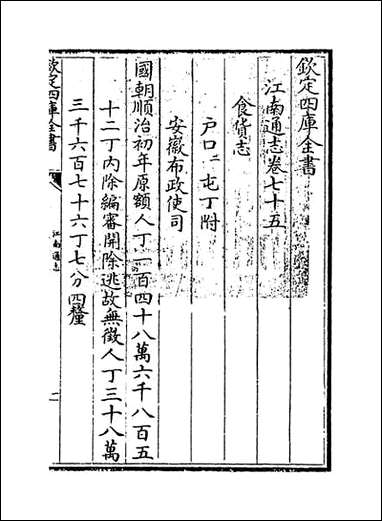 欽定四庫全書
江南通志卷七十五
食貨志
戸口二 屯丁附
安徽布政使司
國朝順治初年原額人丁一百四十八萬六千八百五
十二丁内除編審開除逃故無徵人丁三十八萬
三千六百七十六丁七分四釐
欽定四庫全書
江南通志